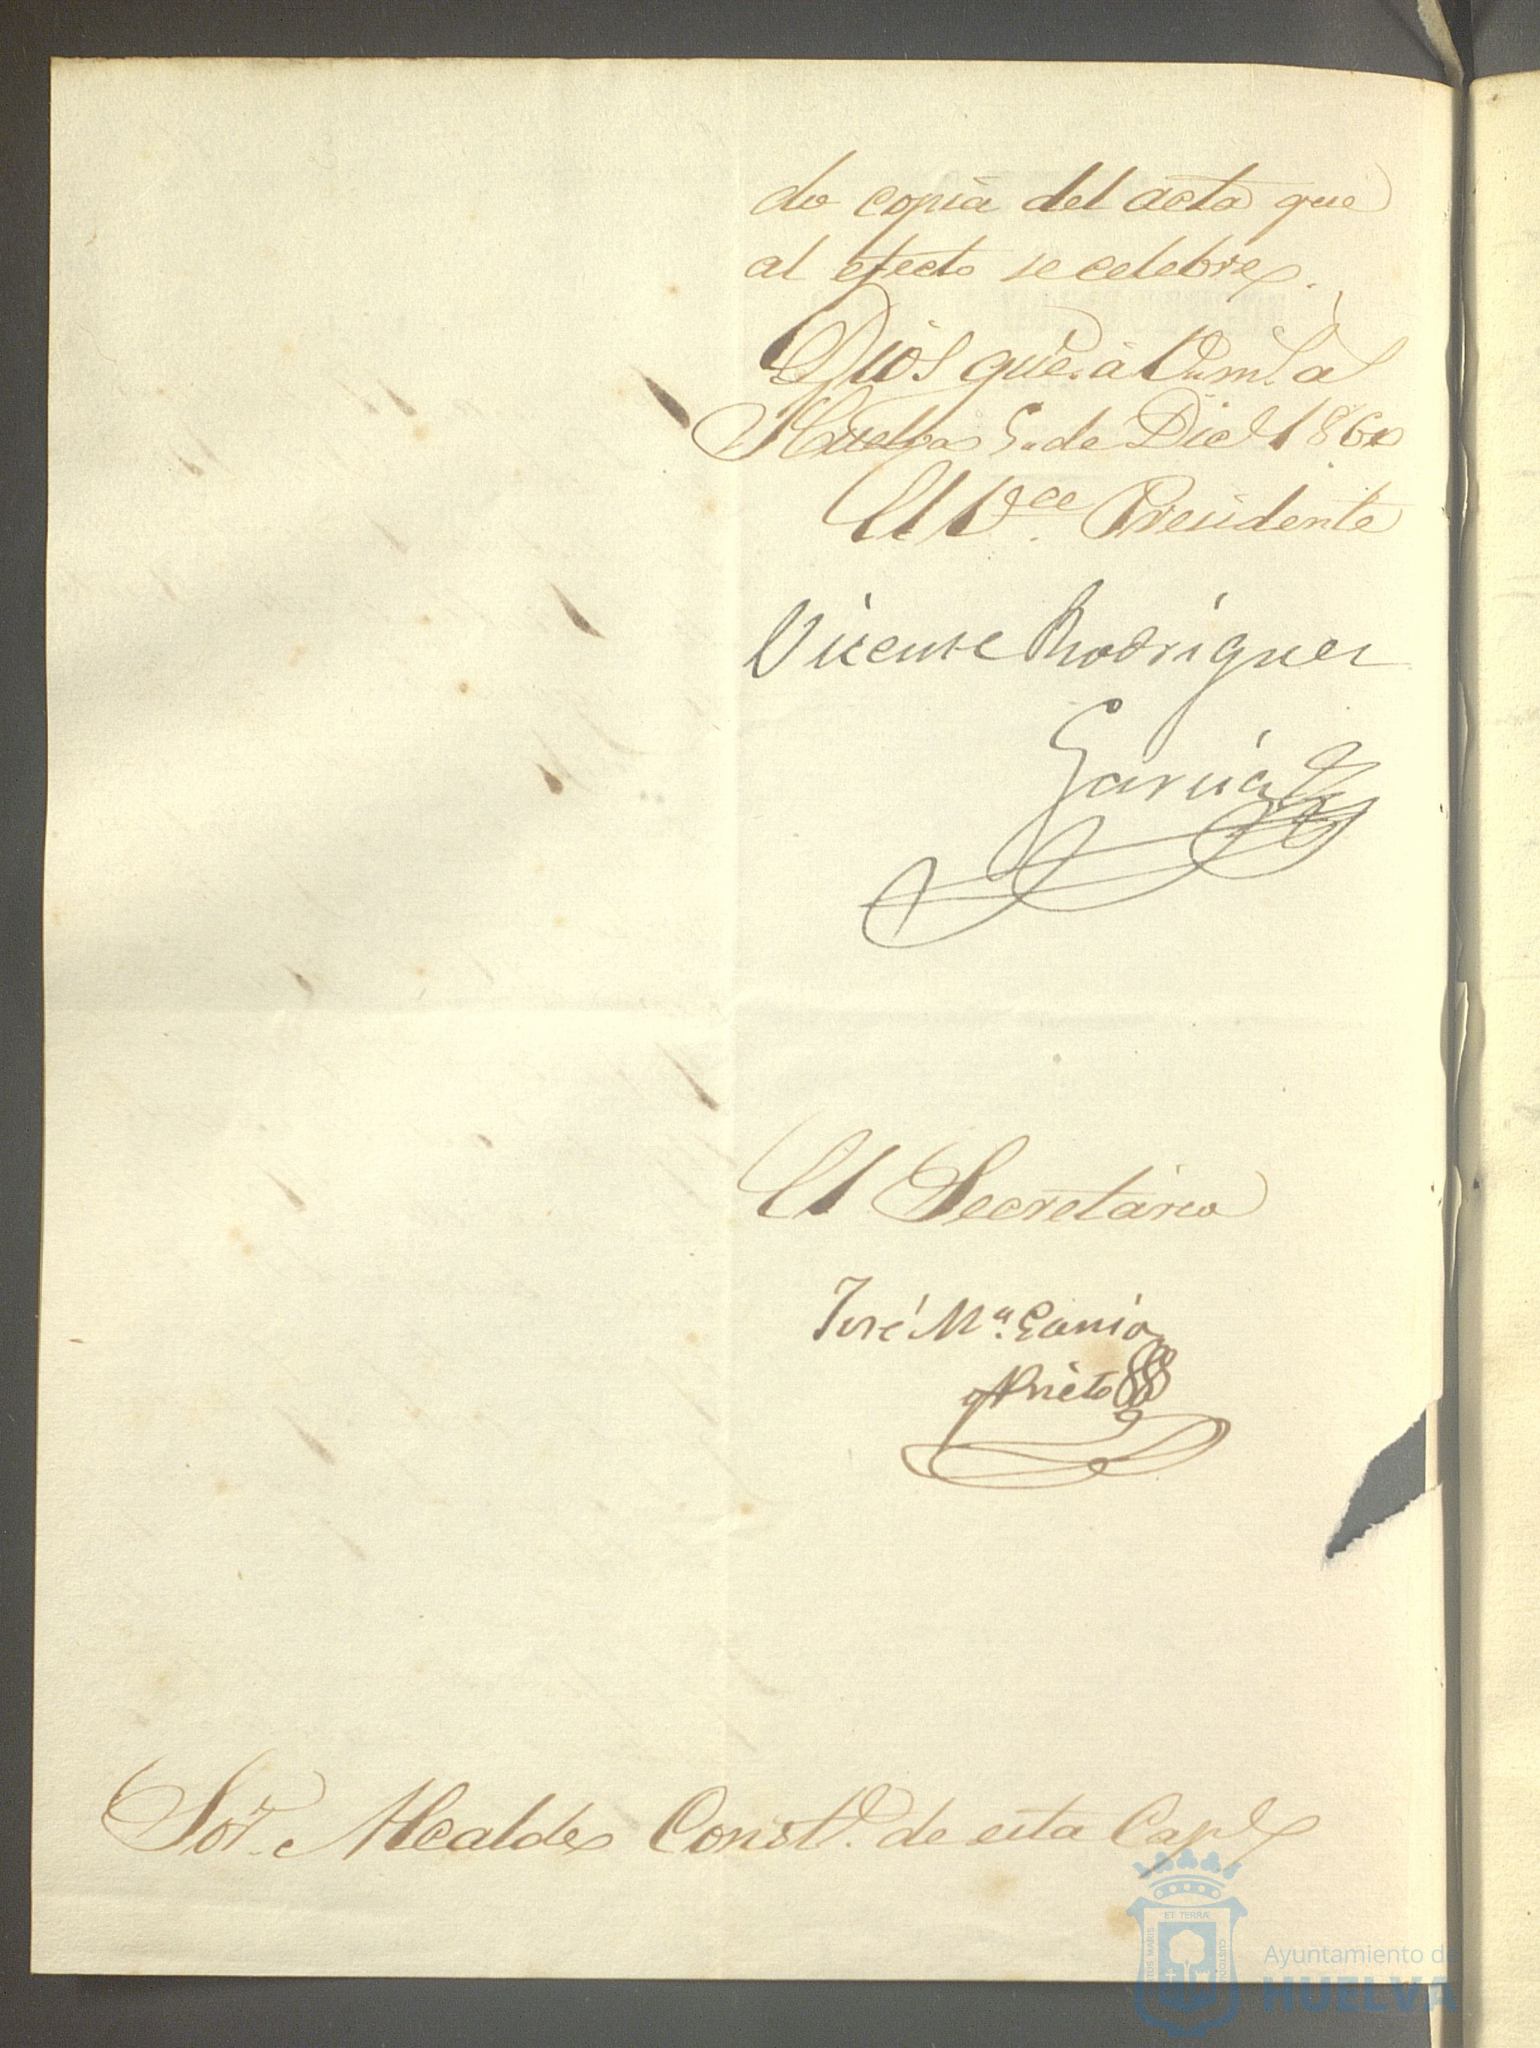 do copia del acta que
al efecto se celebre.
Dios gue. á Vm. a.s
Huelva 5 de Dice 1860
El Vce. Presidente
Vicente Rodriguez
Garcia
El Secretario
José Ma. Garcia
y Prieto
Sor. Alcalde Constl. de esta Capl
ET TERRÆ
Ayuntamiento de
HUELVA